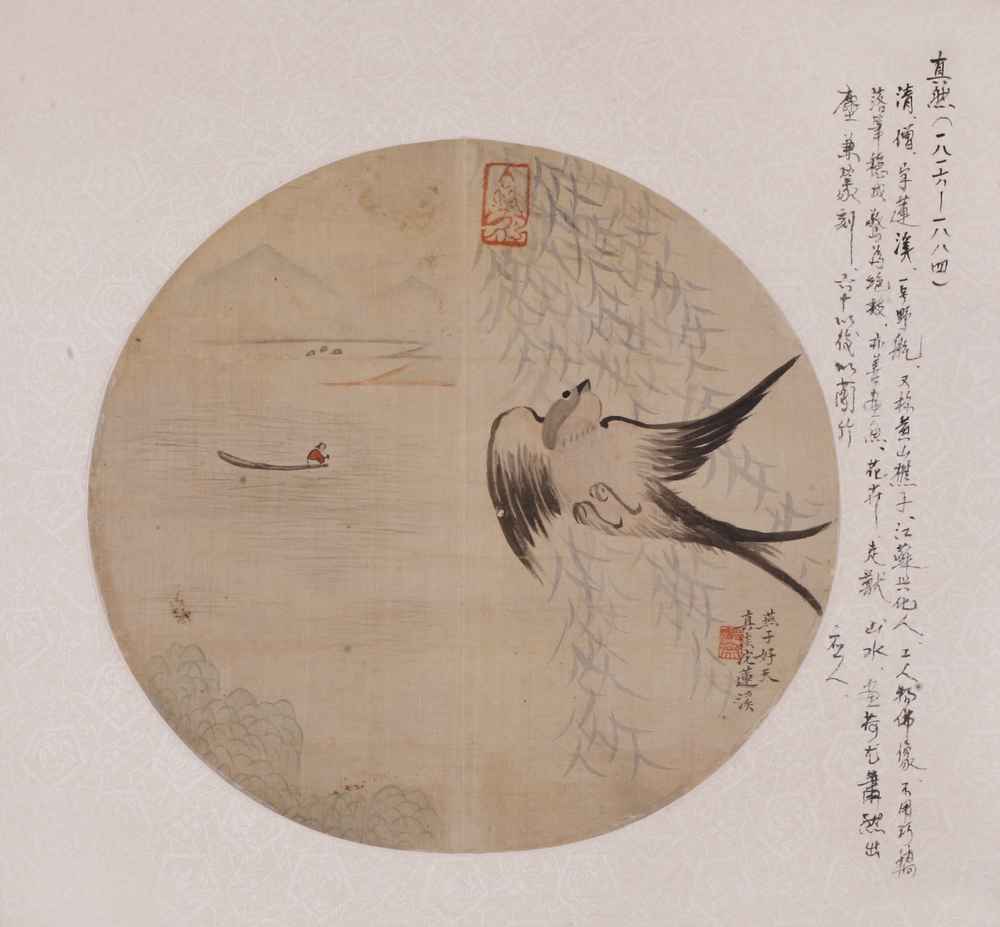 真然(一八一六—一八八四)
清、僧、字蓮溪、一号野航、又称黄山樵子、江蘇兴化人、工人物佛像、不用朽稿
落筆穩成、為絶技、亦善画魚、花卉、走獸、山水、画荷尤蕭然出
塵、兼篆刻、六十以後以蘭竹
应人、
燕子好天
真然沈蓮溪